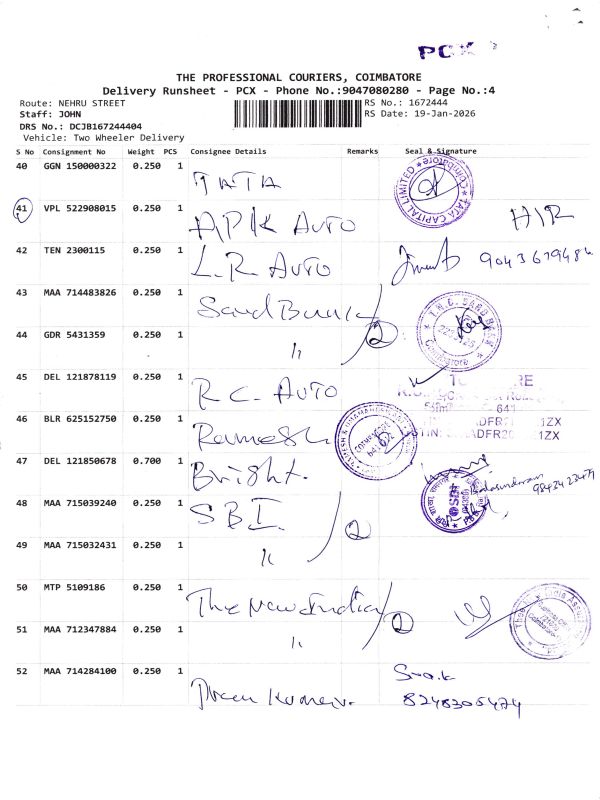 PCX
THE PROFESSIONAL COURIERS, COIMBATORE
Delivery Runsheet - PCX - Phone No.:9047080280 - Page No.:4
Route: NEHRU STREET
RS No.: 1672444
Staff: JOHN
RS Date: 19-Jan-2026
DRS No.: DCJB167244404
Vehicle: Two Wheeler Delivery
S No Consignment No Weight PCS Consignee Details Remarks Seal & Signature
40 GGN 150000322 0.250 1 TATA
TATA CAPITAL LIMITED Coimbatore
41 VPL 522908015 0.250 1 A/P/K AUTO
42 TEN 2300115 0.250 1 L.R. AUTO 9043679484
43 MAA 714483826 0.250 1
44 GDR 5431359 0.250 1 " 2
45 DEL 121878119 0.250 1 R.C. AUTO
46 BLR 625152750 0.250 1 Ramesh
47 DEL 121850678 0.700 1 Bright.
Balasundaram
48 MAA 715039240 0.250 1 S B I
SBI
49 MAA 715032431 0.250 1 " 2
50 MTP 5109186 0.250 1 The New India
51 MAA 712347884 0.250 1 " 2
52 MAA 714284100 0.250 1 Kumar.
8248305474